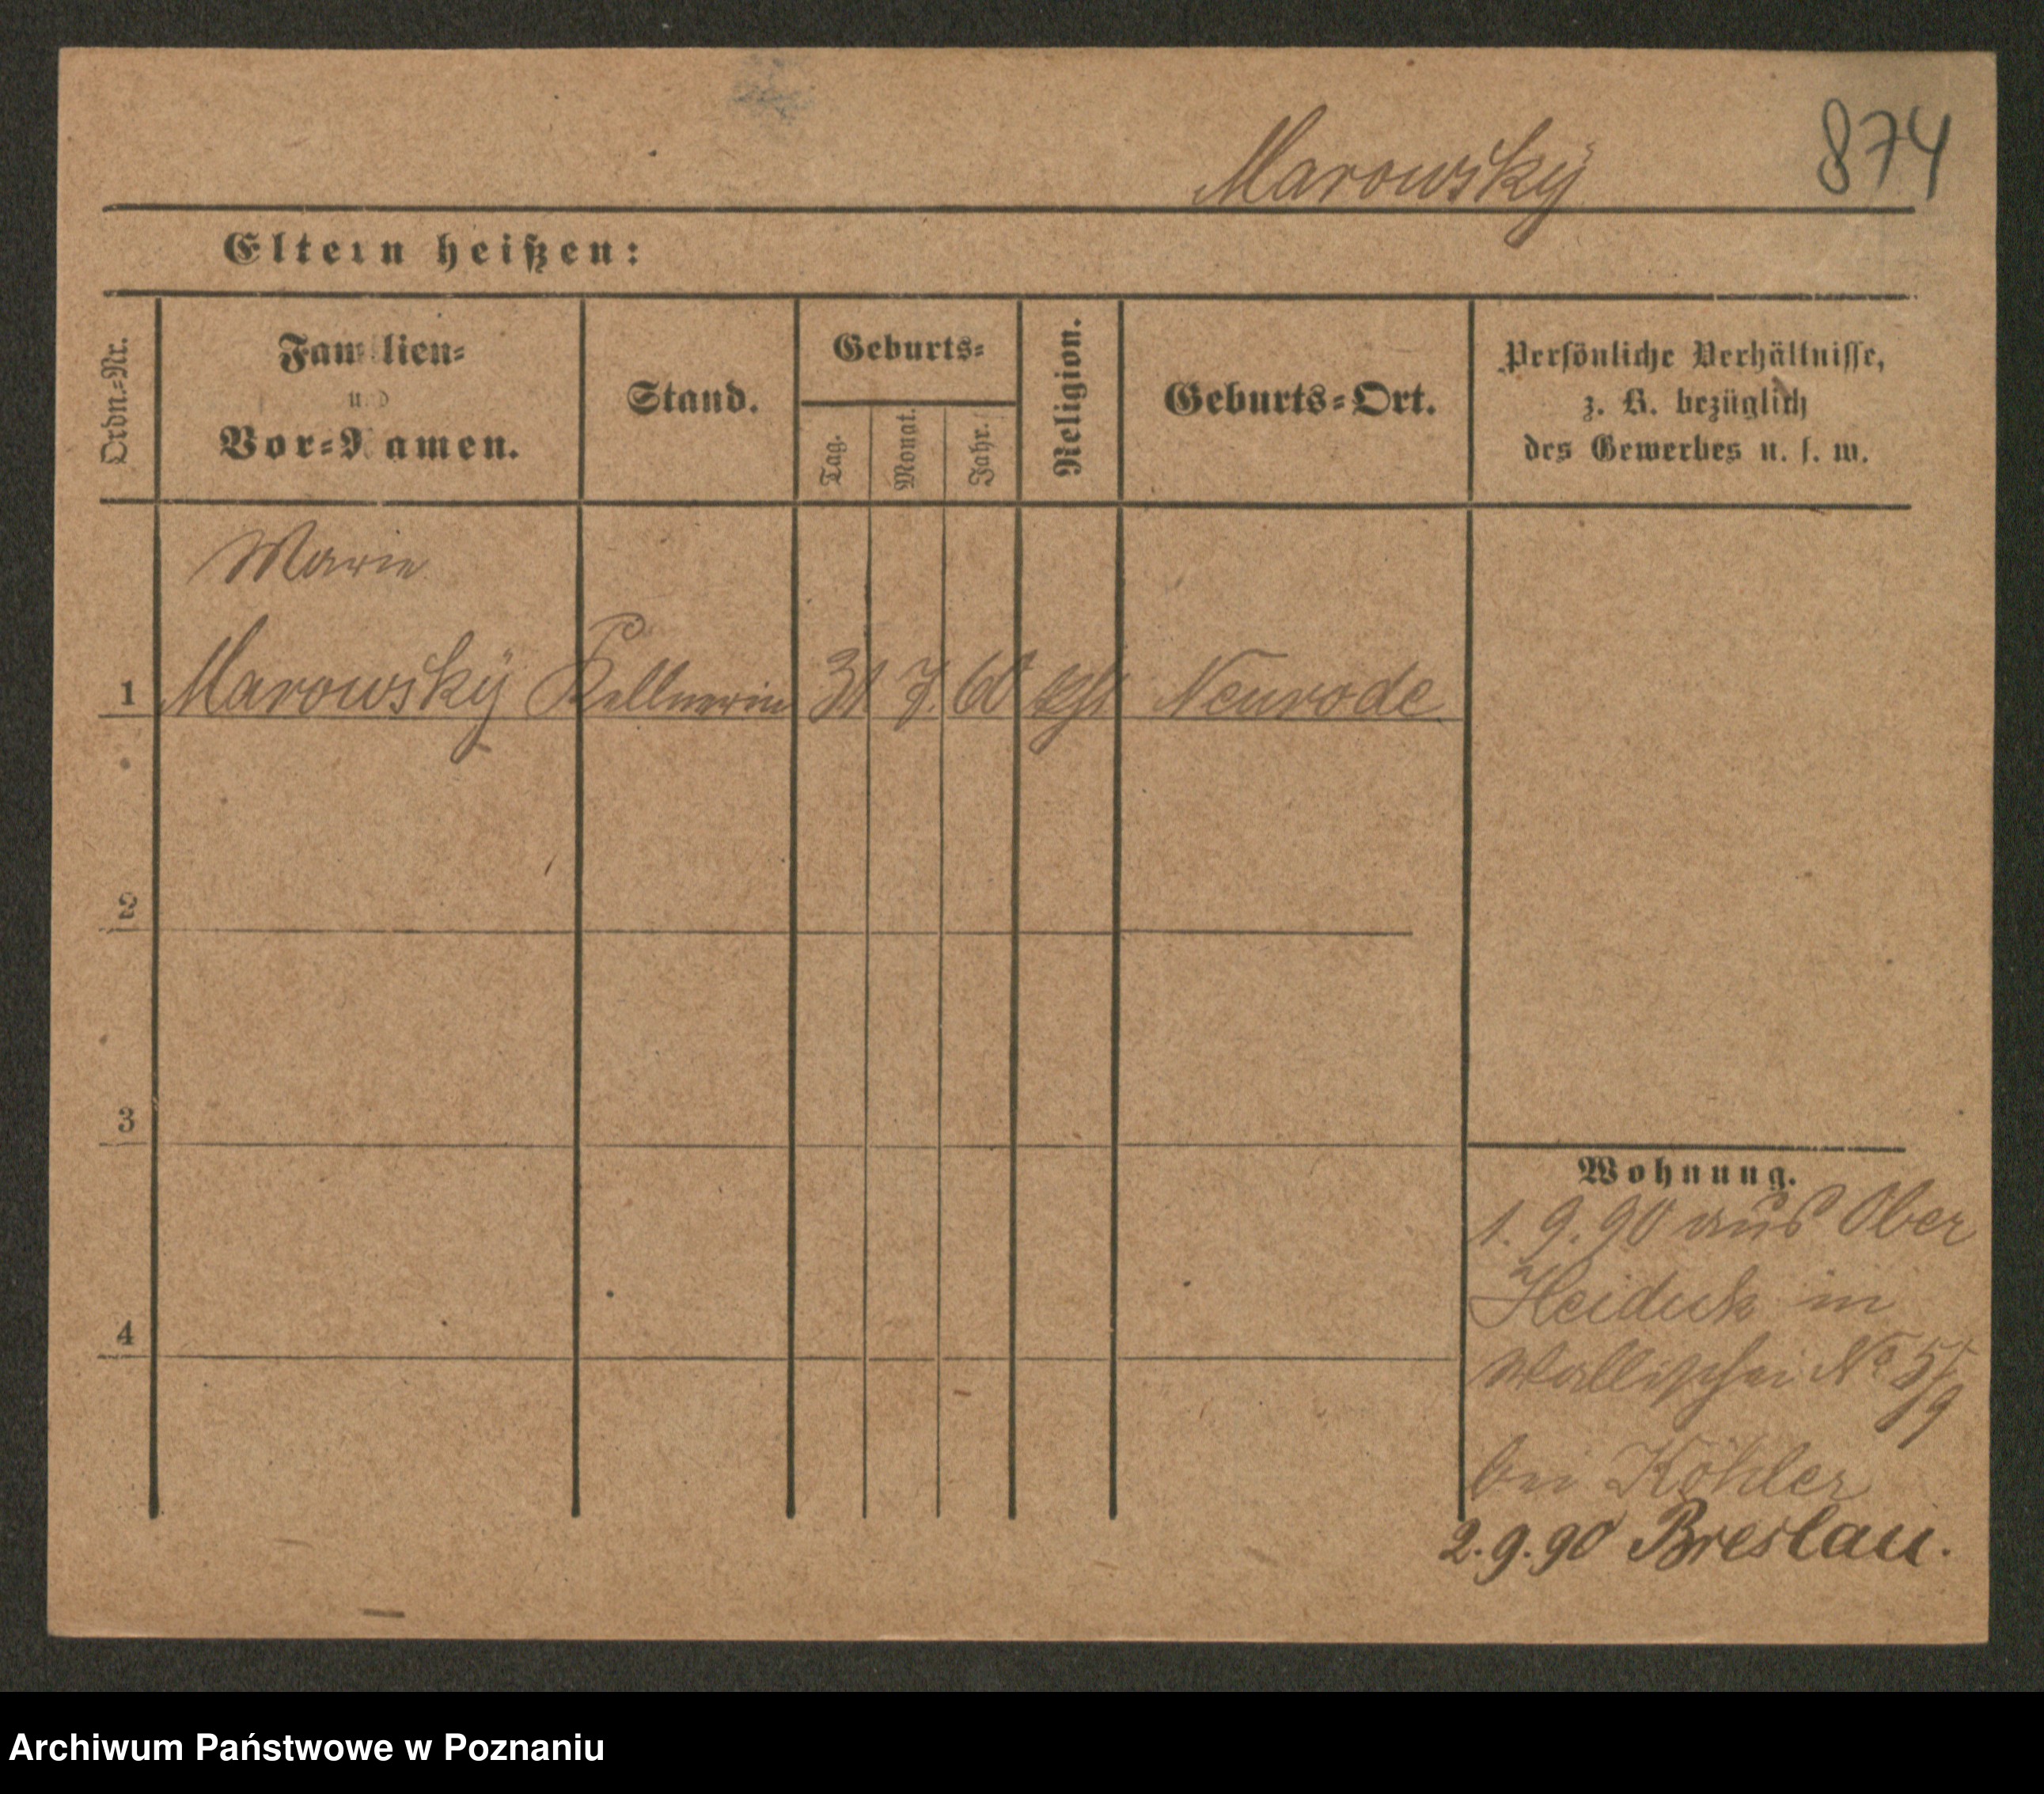 Marowskÿ
874
Eltern heißen:
Ordn.=Nr.
Familien=
und
Vor=Namen.
Stand.
Geburts=
Tag.
Monat.
Jahr.
Religion.
Geburts=Ort.
Persönliche Verhältnisse,
z. B. bezüglich
des Gewerbes u. s. w.
Marie
1 Marowskÿ Kellnerin 31 7. 60 kth Neurode
2
3
4
Wohnung.
1. 9. 90 aus Ober
Heiduk in
Wallischei No 5/9
bei Köhler
2. 9. 90 Breslau.
Archiwum Państwowe w Poznaniu